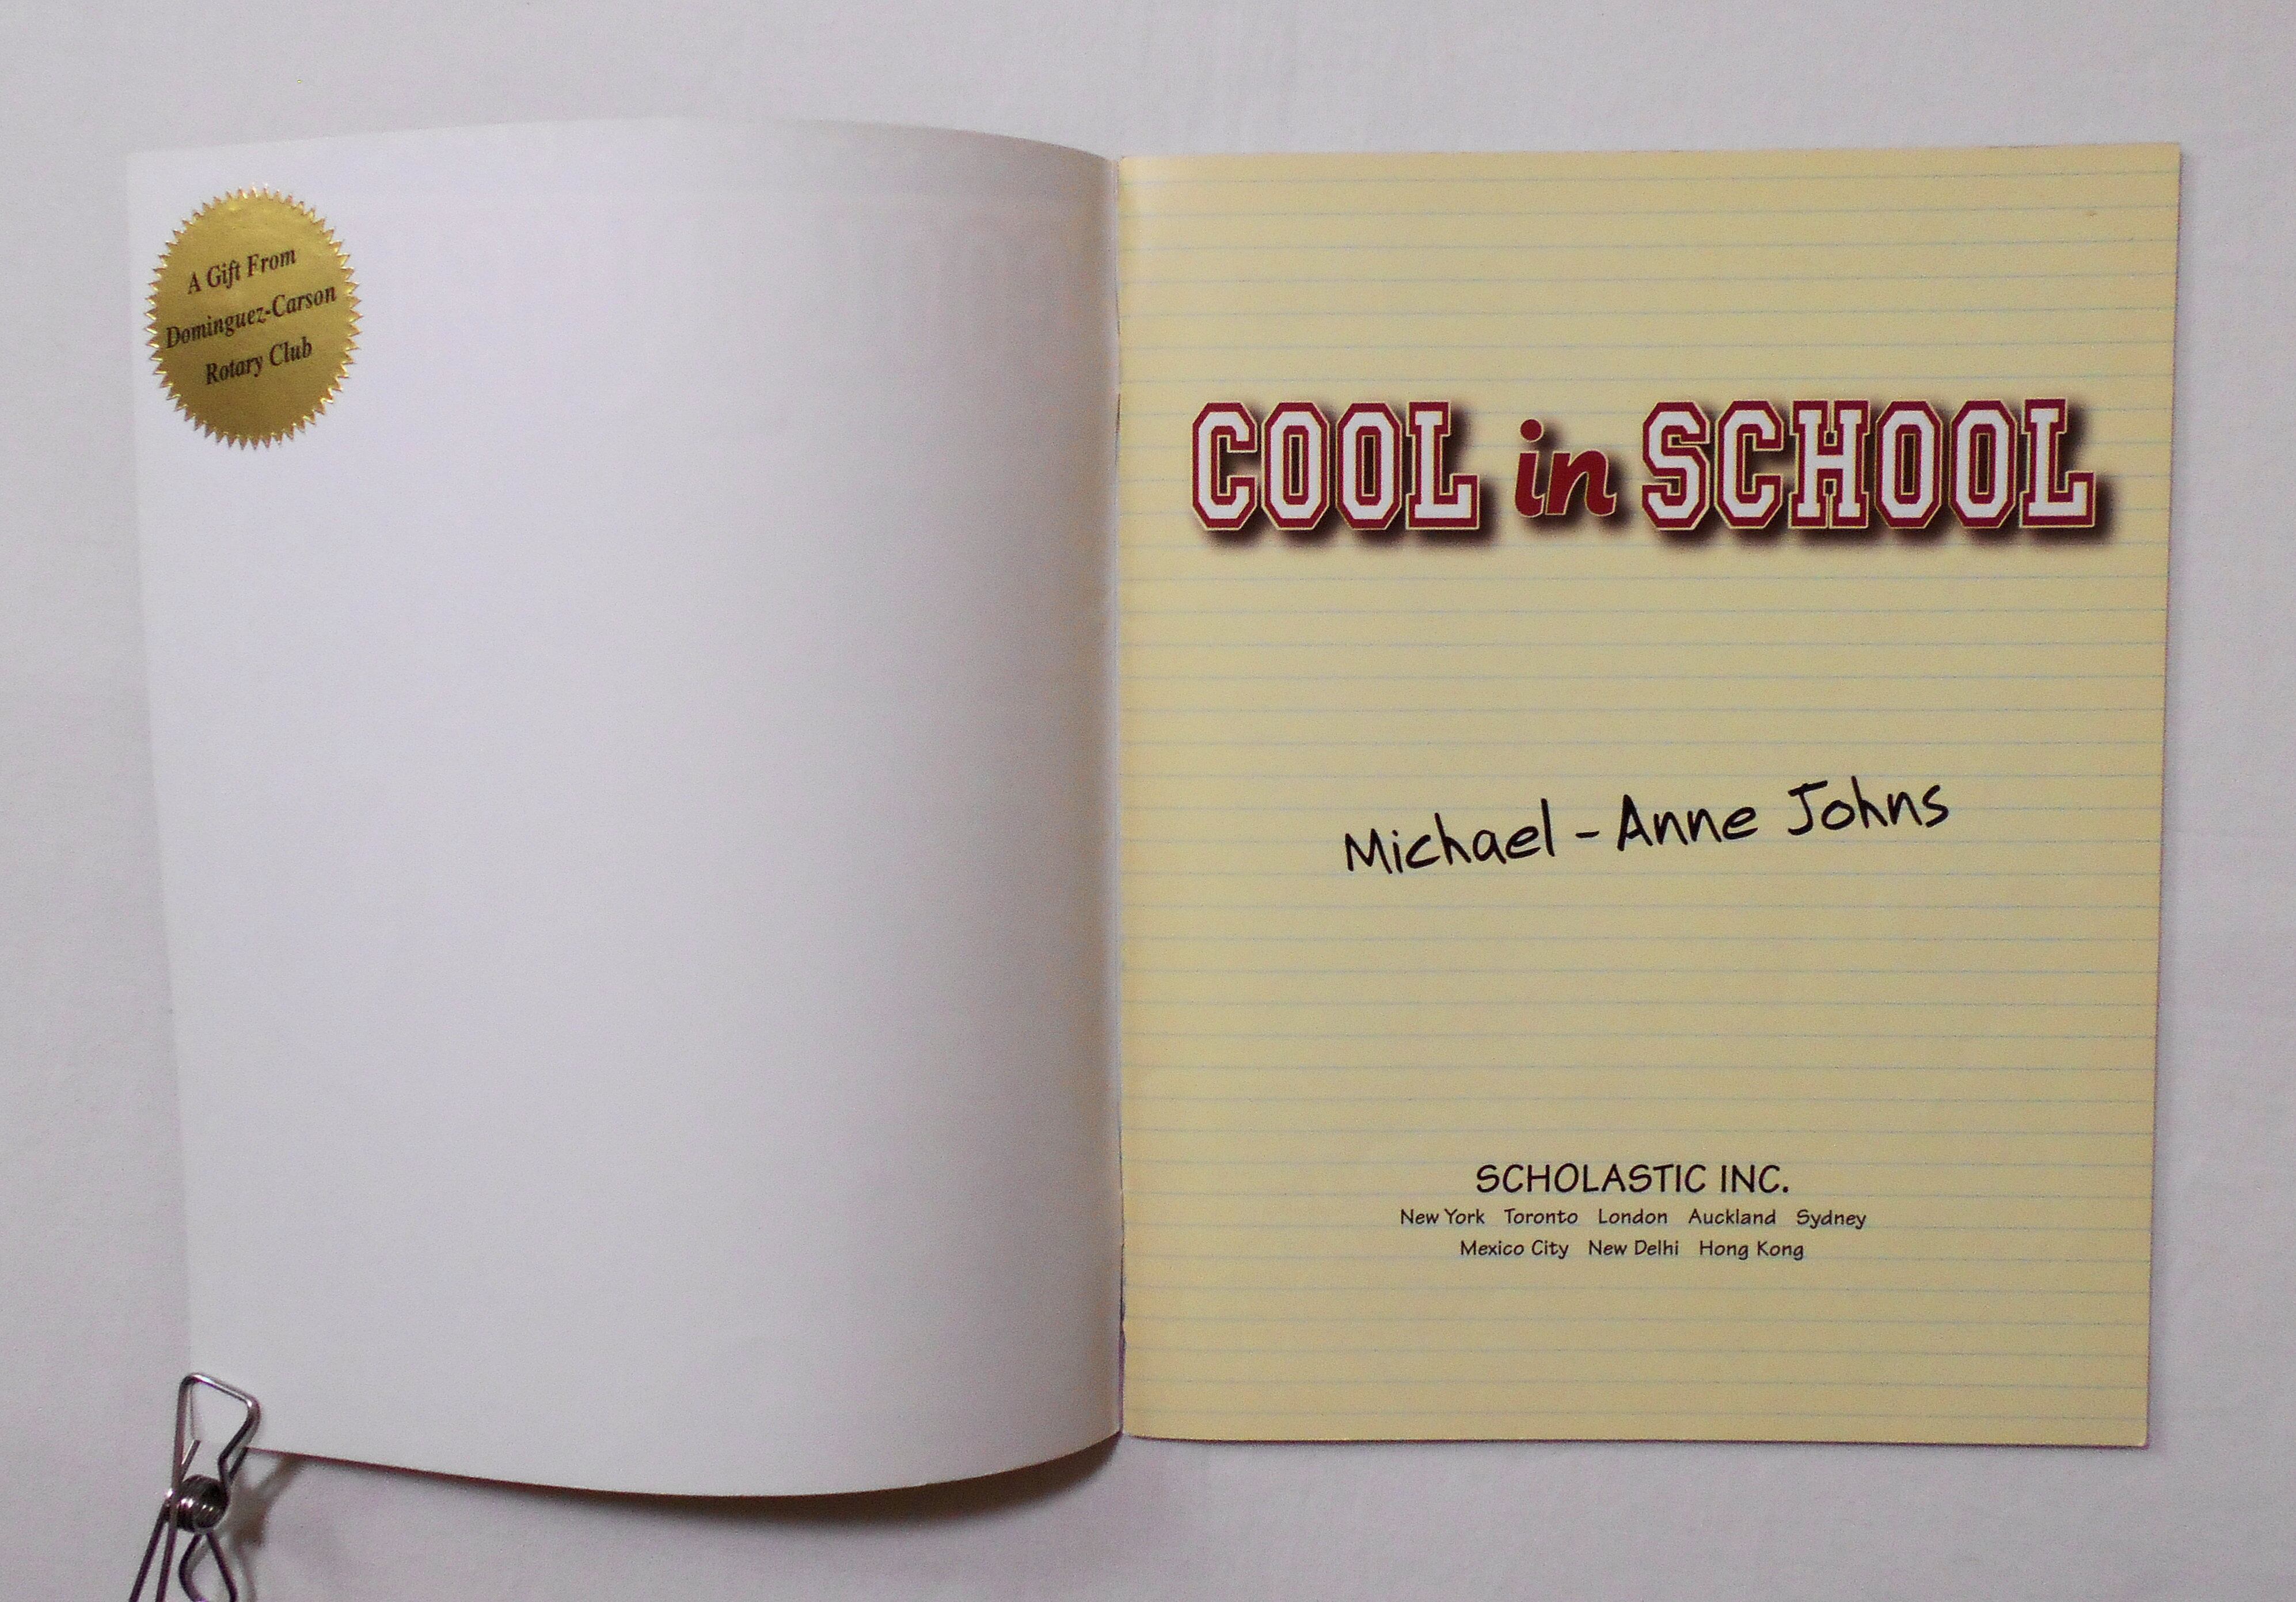 A Gift From
Dominguez-Carson
Rotary Club
COOL in SCHOOL
Michael-Anne Johns
SCHOLASTIC INC.
New York Toronto London Auckland Sydney
Mexico City New Delhi Hong Kong